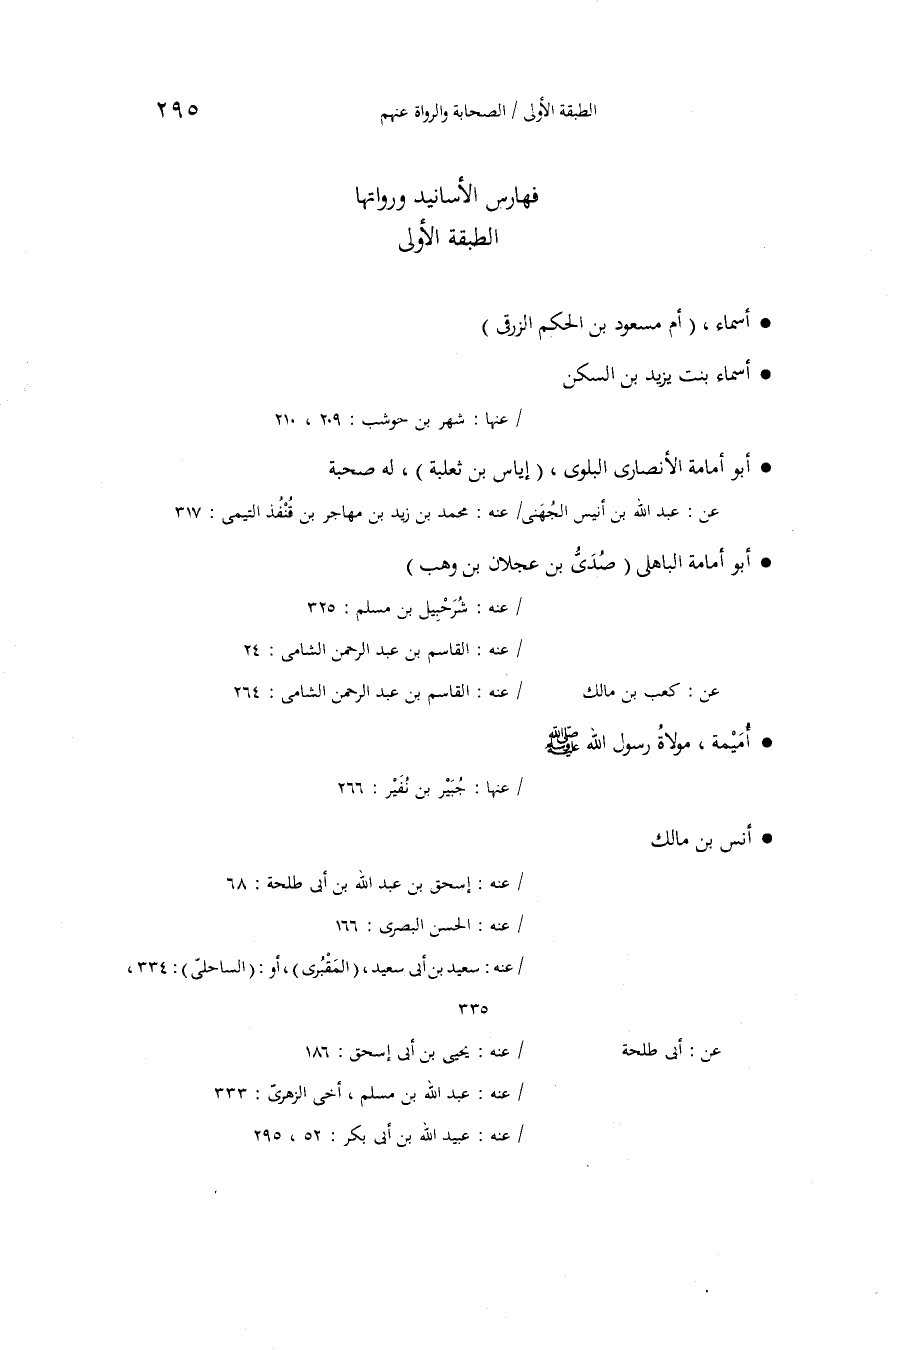 الطبقة الأولى / الصحابة والرواة عنهم ٢٩٥
فهارس الأسانيد ورواتها
الطبقة الأولى
● أسماء ، ( أم مسعود بن الحكم الزرقى )
● أسماء بنت يزيد بن السكن
/ عنها : شهر بن حوشب : ٢٠٩ ، ٢١٠
● أبو أمامة الأنصارى البلوى ، ( إياس بن ثعلبة ) ، له صحبة
عن : عبد الله بن أنيس الجُهَنى/ عنه : محمد بن زيد بن مهاجر بن قُنْفُذ التيمى : ٣١٧
● أبو أمامة الباهلى ( صُدَىُّ بن عجلان بن وهب )
/ عنه : شُرَحْبِيل بن مسلم : ٣٢٥
/ عنه : القاسم بن عبد الرحمن الشامى : ٢٤
عن : كعب بن مالك / عنه : القاسم بن عبد الرحمن الشامى : ٢٦٤
● أُمَيْمة ، مولاةُ رسول الله ﷺ
/ عنها : جُبَيْر بن نُفَيْر : ٢٦٦
● أنس بن مالك
/ عنه : إسحق بن عبد الله بن أبى طلحة : ٦٨
/ عنه : الحسن البصرى : ١٦٦
/ عنه : سعيد بن أبى سعيد ، (المَقْبُرى) ، أو : (الساحلىّ) : ٣٣٤ ،
٣٣٥
عن : أبى طلحة / عنه : يحيى بن أبى إسحق : ١٨٦
/ عنه : عبد الله بن مسلم ، أخى الزهرىّ : ٣٣٣
/ عنه : عبيد الله بن أبى بكر : ٥٢ ، ٢٩٥